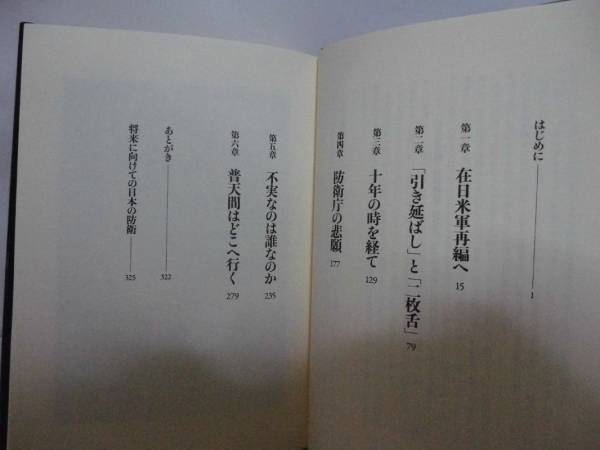 はじめに 1
第一章 在日米軍再編へ 15
第二章 「引き延ばし」と「二枚舌」 79
第三章 十年の時を経て 129
第四章 防衛庁の悲願 177
第五章 不実なのは誰なのか 235
第六章 普天間はどこへ行く 279
あとがき 322
将来に向けての日本の防衛 325